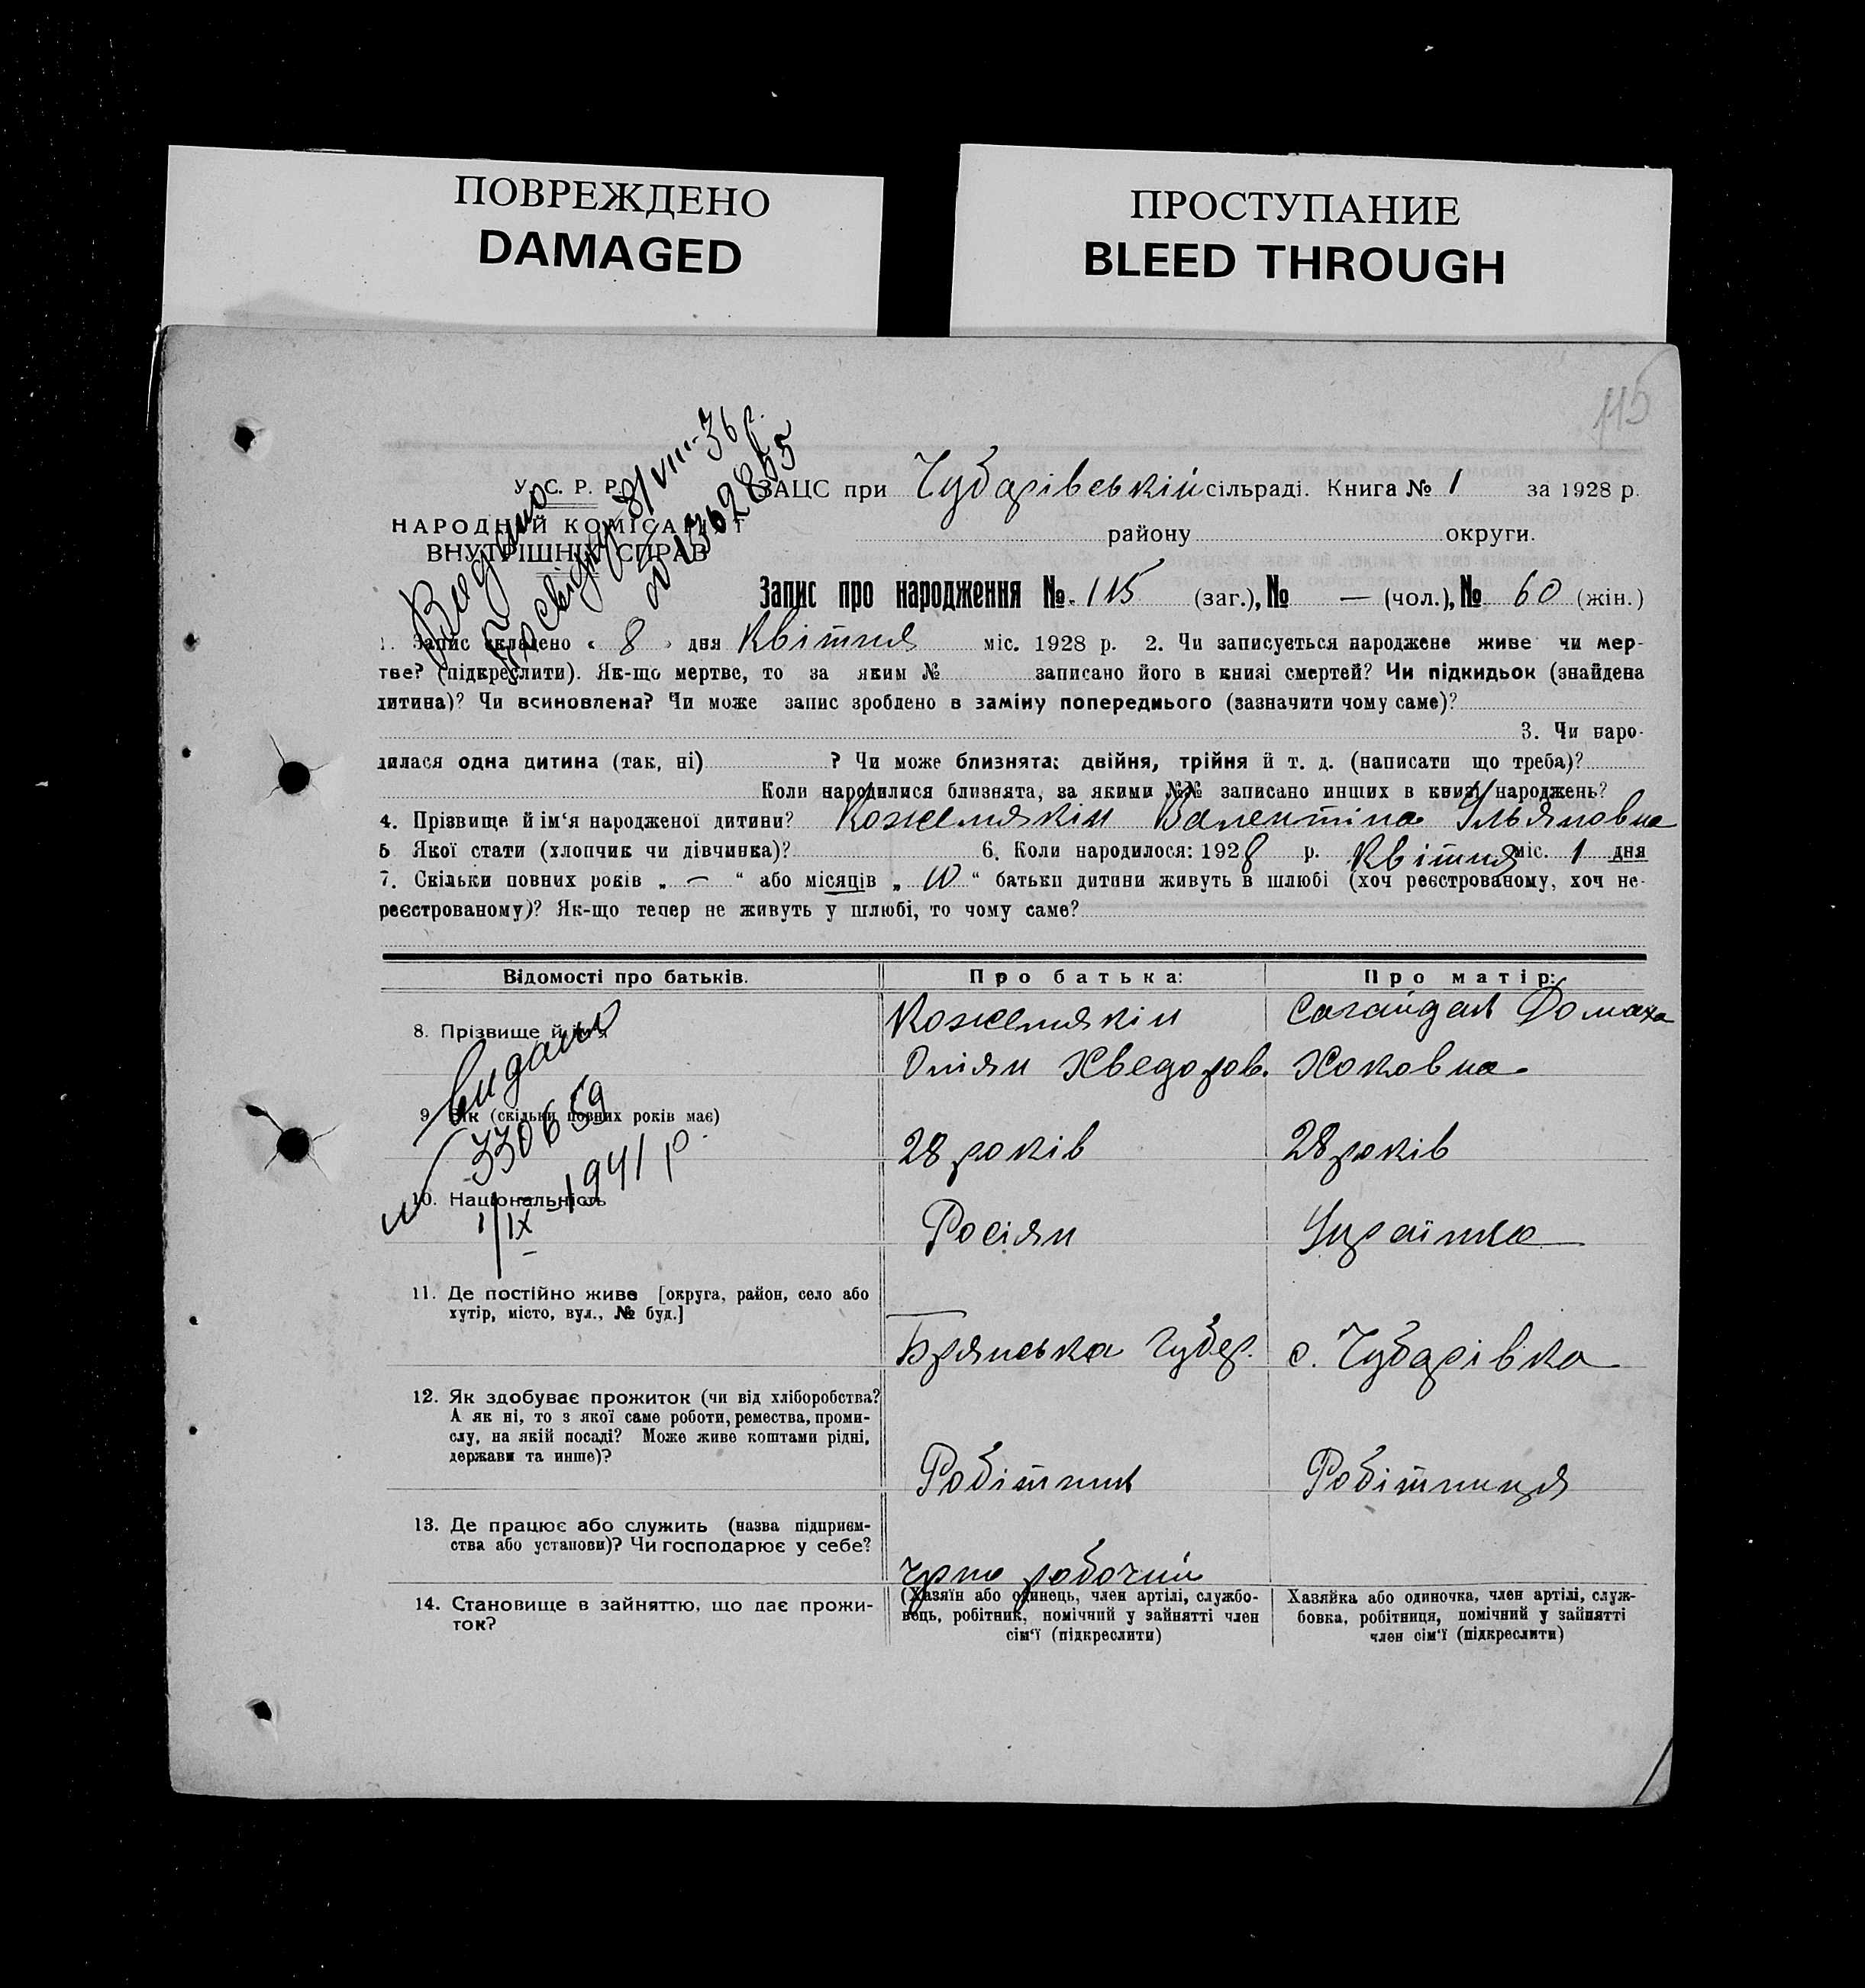 ПОВРЕЖДЕНО
DAMAGED
ПРОСТУПАНИЕ
BLEED THROUGH
115
У. С. Р. Р.
НАРОДНІЙ КОМІСАРІЯТ
ВНУТРІШНІХ СПРАВ
Видано
8/VIII-36 р.
ЗАЦС при Чубарівській сільраді. Книга № 1 за 1928 р.
району округи.
Запис про народження № 115 (заг.), № — (чол.), № 60 (жін.)
1. Запис складено « 8 » дня Квітня міс. 1928 р. 2. Чи записується народжене живе чи мер-
тве? (підкреслити). Як-що мертве, то за яким № записано його в книзі смертей? Чи підкидьок (знайдена
дитина)? Чи всиновлена? Чи може запис зроблено в заміну попереднього (зазначити чому саме)?
3. Чи наро-
дилася одна дитина (так, ні) ? Чи може близнята: двійня, трійня й т. д. (написати що треба)?
Коли народилися близнята, за якими №№ записано инших в книзі народжень?
4. Прізвище й ім‘я народженої дитини? Кожемякін Валентіна Ільяновна
5 Якої стати (хлопчик чи дівчинка)? 6. Коли народилося: 1928 р. Квітня міс. 1 дня
7. Скільки повних років „ — “ або місяців „ 10 “ батьки дитини живуть в шлюбі (хоч реєстрованому, хоч не-
реєстрованому)? Як-що тепер не живуть у шлюбі, то чому саме?
Відомості про батьків. Про батька: Про матір:
8. Прізвище й ім‘я Кожемякін Сагайдак Домаха
Хведоров.
видано
9. Вік (скільки повних років має) 28 років 28 років
№ 330659
10. Національність Росіян Украінка
1/IX-1941 р.
11. Де постійно живе [округа, район, село або
хутір, місто, вул., № буд.] Брянська губер. с. Чубарівка
12. Як здобуває прожиток (чи від хліборобства?
А як ні, то з якої саме роботи, ремества, проми-
слу, на якій посаді? Може живе коштами рідні,
держави та инше)? Робітник Робітниця
13. Де працює або служить (назва підприєм-
ства або установи)? Чи господарює у себе? робочий
14. Становище в зайняттю, що дає прожи-
ток?
(Хазяїн або одинець, член артілі, службо-
вець, робітник, помічний у зайнятті член
сім‘ї (підкреслити)
Хазяйка або одиночка, член артілі, служ-
бовка, робітниця, помічний у зайнятті
член сім‘ї (підкреслити)